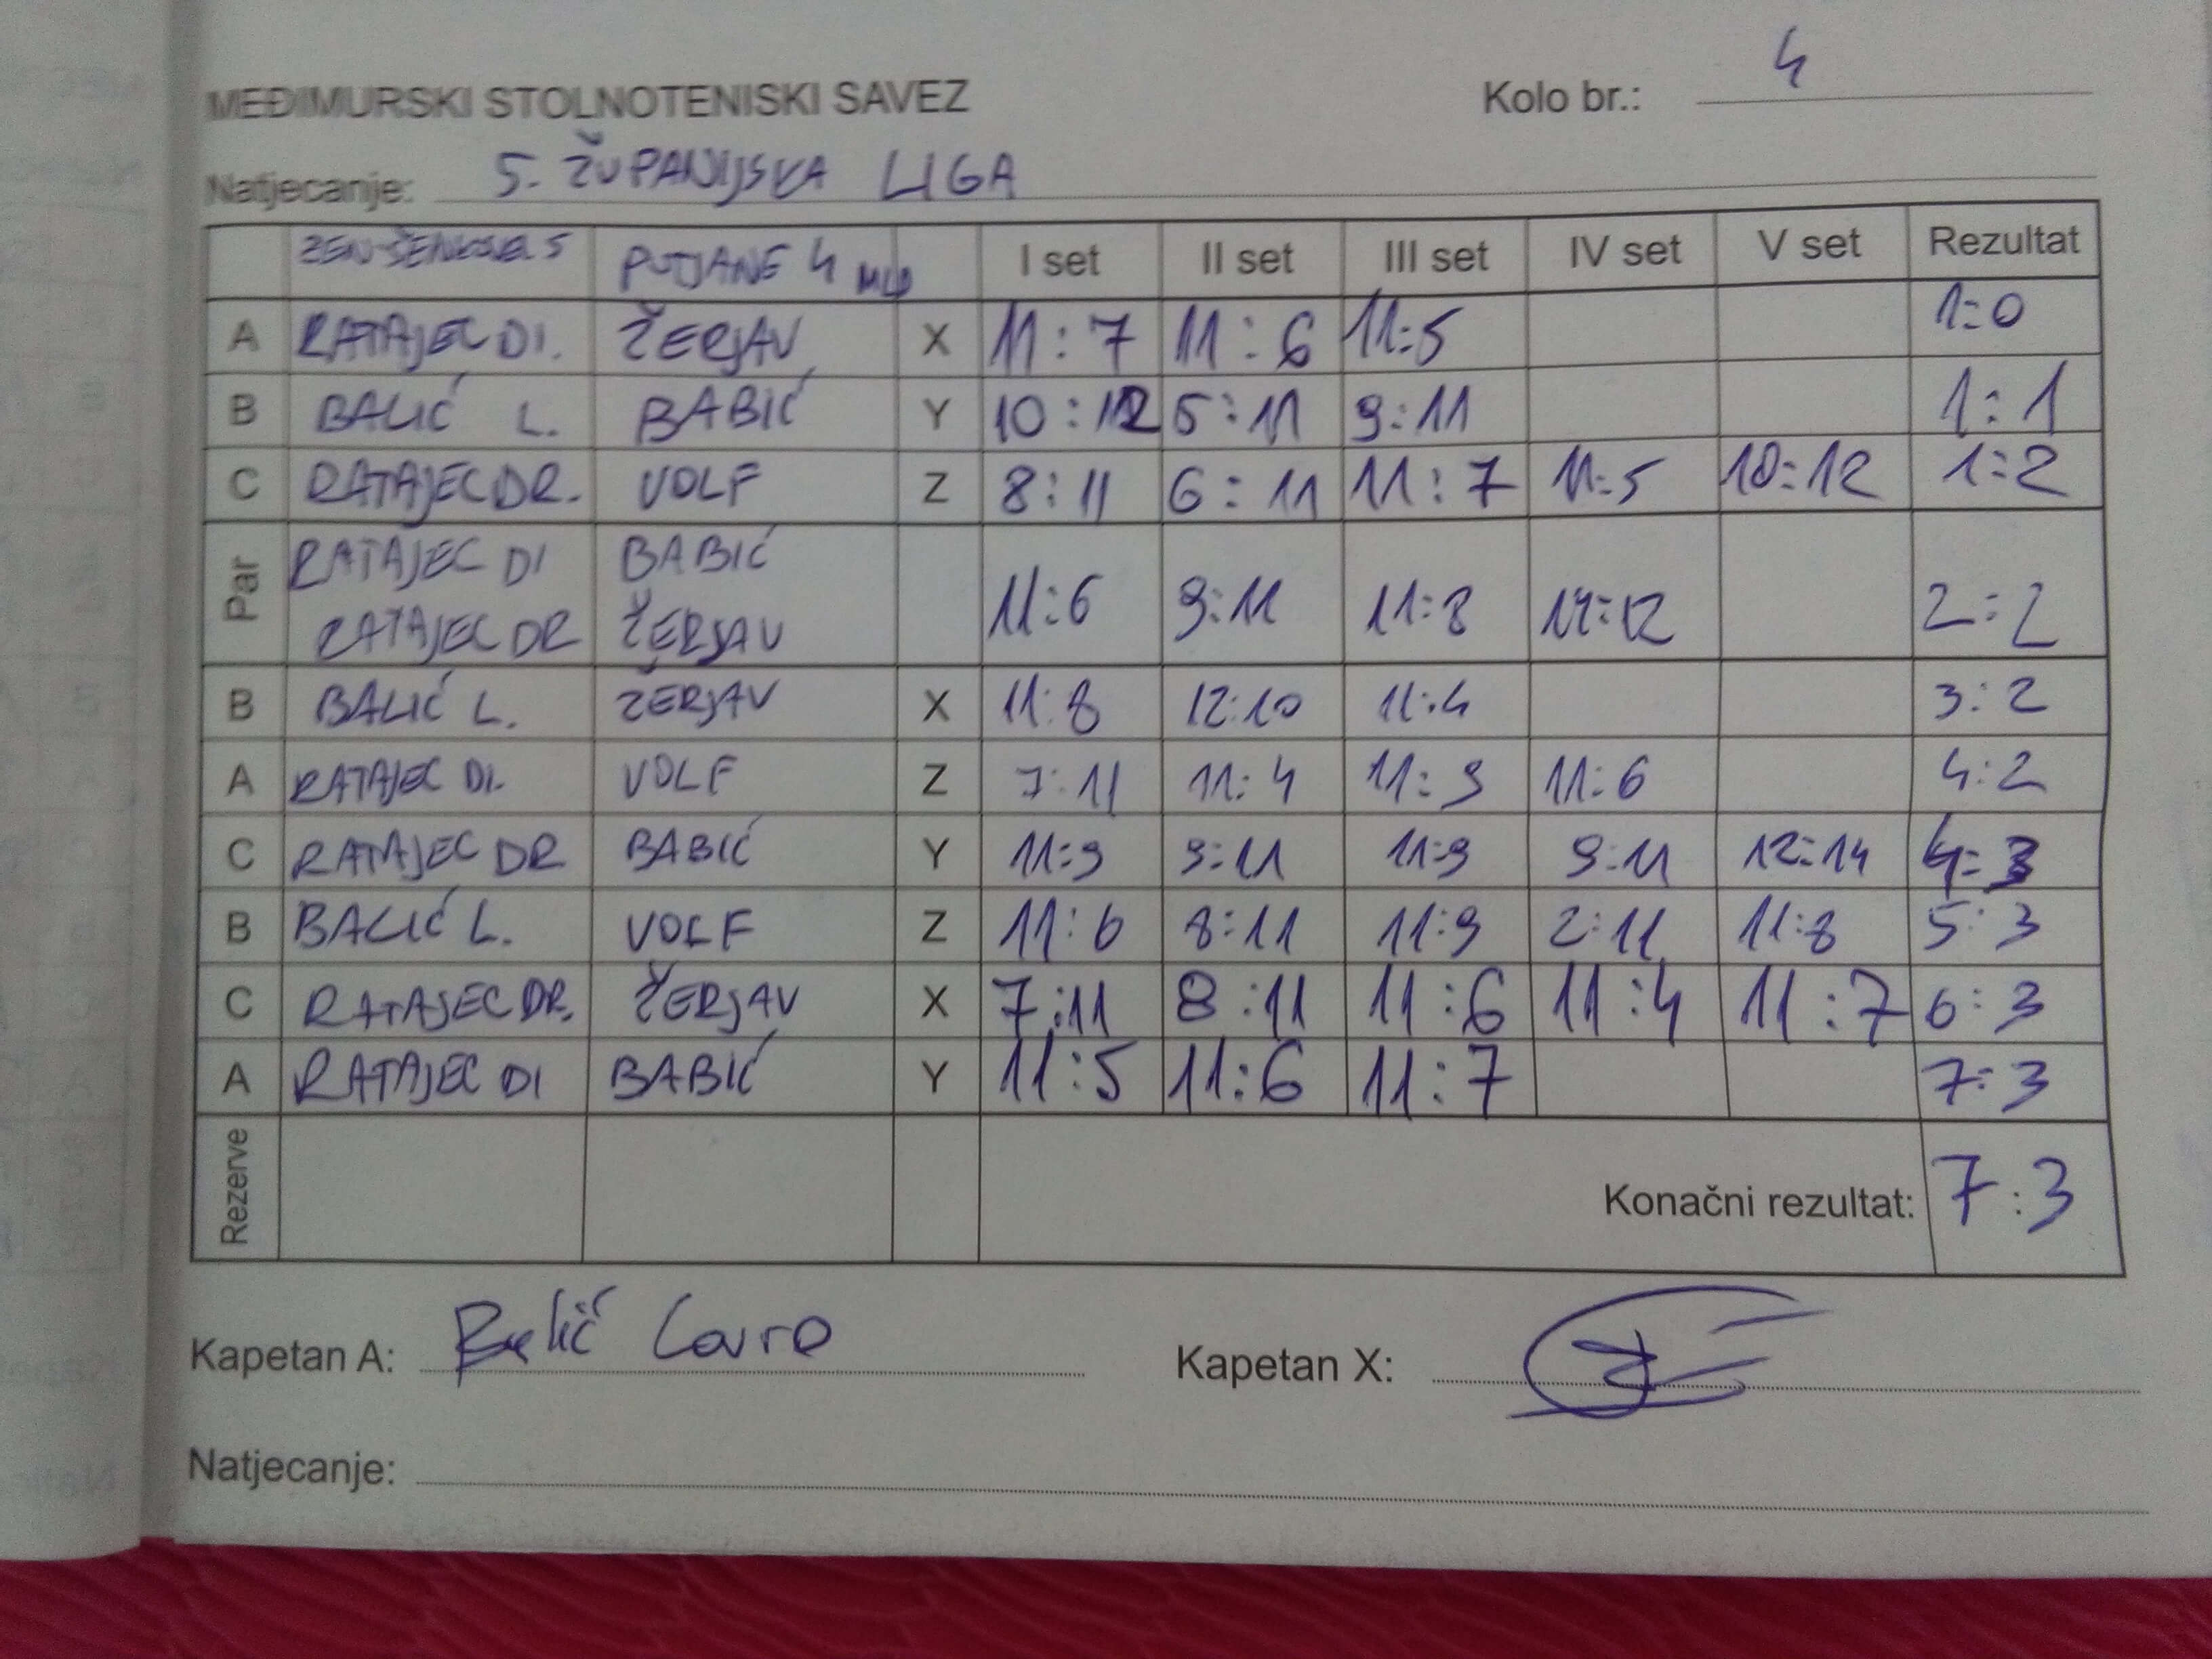 MEĐIMURSKI STOLNOTENISKI SAVEZ Kolo br.: 4
Natjecanje: 5. ŽUPANIJSKA LIGA
PUTJANE 4 I set II set III set IV set V set Rezultat
A RATAJEC DI. ŽERJAV X 11:7 11:6 11:5 1:0
B BALIĆ L. BABIĆ Y 10:12 5:11 9:11 1:1
C RATAJEC DR. VOLF Z 8:11 6:11 11:7 11:5 10:12 1:2
Par RATAJEC DI BABIĆ 11:6 9:11 11:8 14:12 2:2
RATAJEC DR ŽERJAV
B BALIĆ L. ŽERJAV X 11:8 12:10 11:4 3:2
A RATAJEC DI. VOLF Z 7:11 11:4 11:9 11:6 4:2
C RATAJEC DR BABIĆ Y 11:9 9:11 11:9 9:11 12:14 4:3
B BALIĆ L. VOLF Z 11:6 8:11 11:9 2:11 11:8 5:3
C RATAJEC DR. ŽERJAV X 7:11 8:11 11:6 11:4 11:7 6:3
A RATAJEC DI BABIĆ Y 11:5 11:6 11:7 7:3
Rezerve Konačni rezultat: 7:3
Kapetan A: Balić Lovro Kapetan X:
Natjecanje: